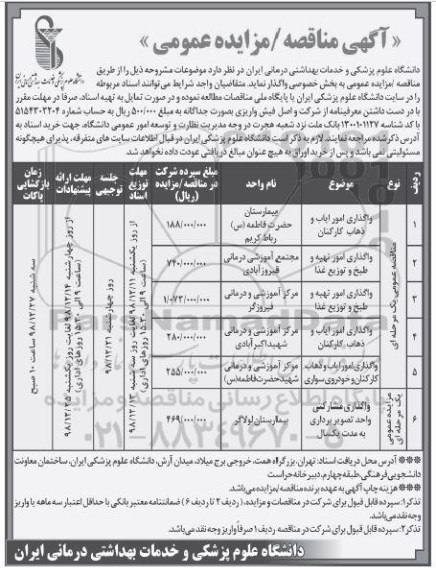 « آگهی مناقصه /مزایده عمومی »
دانشگاه علوم پزشکی و خدمات بهداشتی درمانی ایران در نظر دارد موضوعات مشروحه ذیل را از طریق
مناقصه /مزایده عمومی به بخش خصوصی واگذار نماید. متقاضیان واجد شرایط می توانند اسناد مربوطه
را در سایت دانشگاه علوم پزشکی ایران یا پایگاه ملی مناقصات مطالعه نموده و در صورت تمایل به تهیه اسناد، صرفا در مهلت مقرر
با در دست داشتن معرفینامه از شرکت و اصل فیش واریزی بصورت جداگانه به مبلغ ۵۰۰/۰۰۰ ریال به حساب شماره ۵۱۵۴۳۰۳۲۰۴
با کد شناسه ۱۳۰۰۱۰۱۱۲۷ بانک ملت نزد شعبه هجرت در وجه مدیریت نظارت و توسعه امور عمومی دانشگاه، جهت خرید اسناد به
آدرس ذکرشده مراجعه نمایند. لازم به ذکر است دانشگاه علوم پزشکی ایران در قبال اطلاعات سایت های متفرقه، پذیرای هیچگونه
مسئولیتی نمی باشد و پس از خرید اوراق به هیچ عنوان مبالغ دریافتی عودت داده نخواهد شد.
ردیف نوع موضوع نام واحد مبلغ سپرده شرکت در مناقصه /مزایده (ریال) مهلت توزیع اسناد جلسه توجیهی مهلت ارائه پیشنهادات زمان بازگشایی پاکات
۱ واگذاری امور ایاب و ذهاب کارکنان بیمارستان حضرت فاطمه (س) رباط کریم ۱۸۸/۰۰۰/۰۰۰
۲ واگذاری امور تهیه و طبخ و توزیع غذا مجتمع آموزشی درمانی فیروزآبادی ۷۴۰/۰۰۰/۰۰۰
۳ واگذاری امور تهیه و طبخ و توزیع غذا مرکز آموزشی و درمانی فیروزگر ۱/۰۷۳/۰۰۰/۰۰۰
۴ واگذاری امور ایاب و ذهاب کارکنان مرکز آموزشی و درمانی شهید اکبرآبادی ۲۸۰/۰۰۰/۰۰۰
۵ واگذاری امور ایاب و ذهاب کارکنان و خودروی سواری مرکز آموزشی و درمانی شهید حضرت فاطمه (س) ۲۵۵/۰۰۰/۰۰۰
۶ واگذاری مشارکتی واحد تصویر برداری به مدت یکسال بیمارستان لولاگر ۴۶۹/۰۰۰/۰۰۰
مناقصه عمومی یک مرحله ای
مزایده عمومی یک مرحله ای
از روز یکشنبه ۹۸/۱۲/۱۱ لغایت روز سه شنبه ۹۸/۱۲/۱۳
(ساعت ۹ الی ۱۵:۳۰ روزهای اداری)
روز چهارشنبه ۹۸/۱۲/۲۱
از روز چهارشنبه ۹۸/۱۲/۱۴ لغایت روز یکشنبه ۹۸/۱۲/۲۵
(ساعت ۹ الی ۱۵:۳۰ روزهای اداری)
سه شنبه ۹۸/۱۲/۲۷ ساعت ۱۰ صبح
ParsNamadData
۰۲۱-۸۸۳۴۹۶۷۰
*** آدرس محل دریافت اسناد: تهران، بزرگراه همت، خروجی برج میلاد، میدان آرش، دانشگاه علوم پزشکی ایران، ساختمان معاونت
دانشجویی فرهنگی، طبقه چهارم، دبیرخانه حراست
*** هزینه چاپ آگهی به عهده برنده مناقصه/مزایده می باشد.
تذکر۱: سپرده قابل قبول برای شرکت در مناقصات و مزایده، (ردیف ۲ تا ردیف ۶) ضمانتنامه معتبر بانکی با حداقل اعتبار سه ماهه یا واریز
وجه نقد می باشد.
تذکر۲: سپرده قابل قبول برای شرکت در مناقصه ردیف ۱ صرفا واریز وجه نقد می باشد.
دانشگاه علوم پزشکی و خدمات بهداشتی درمانی ایران